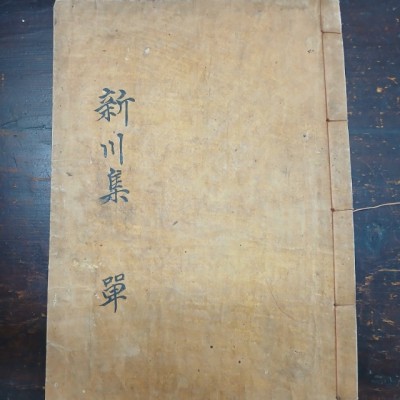 新川集 單